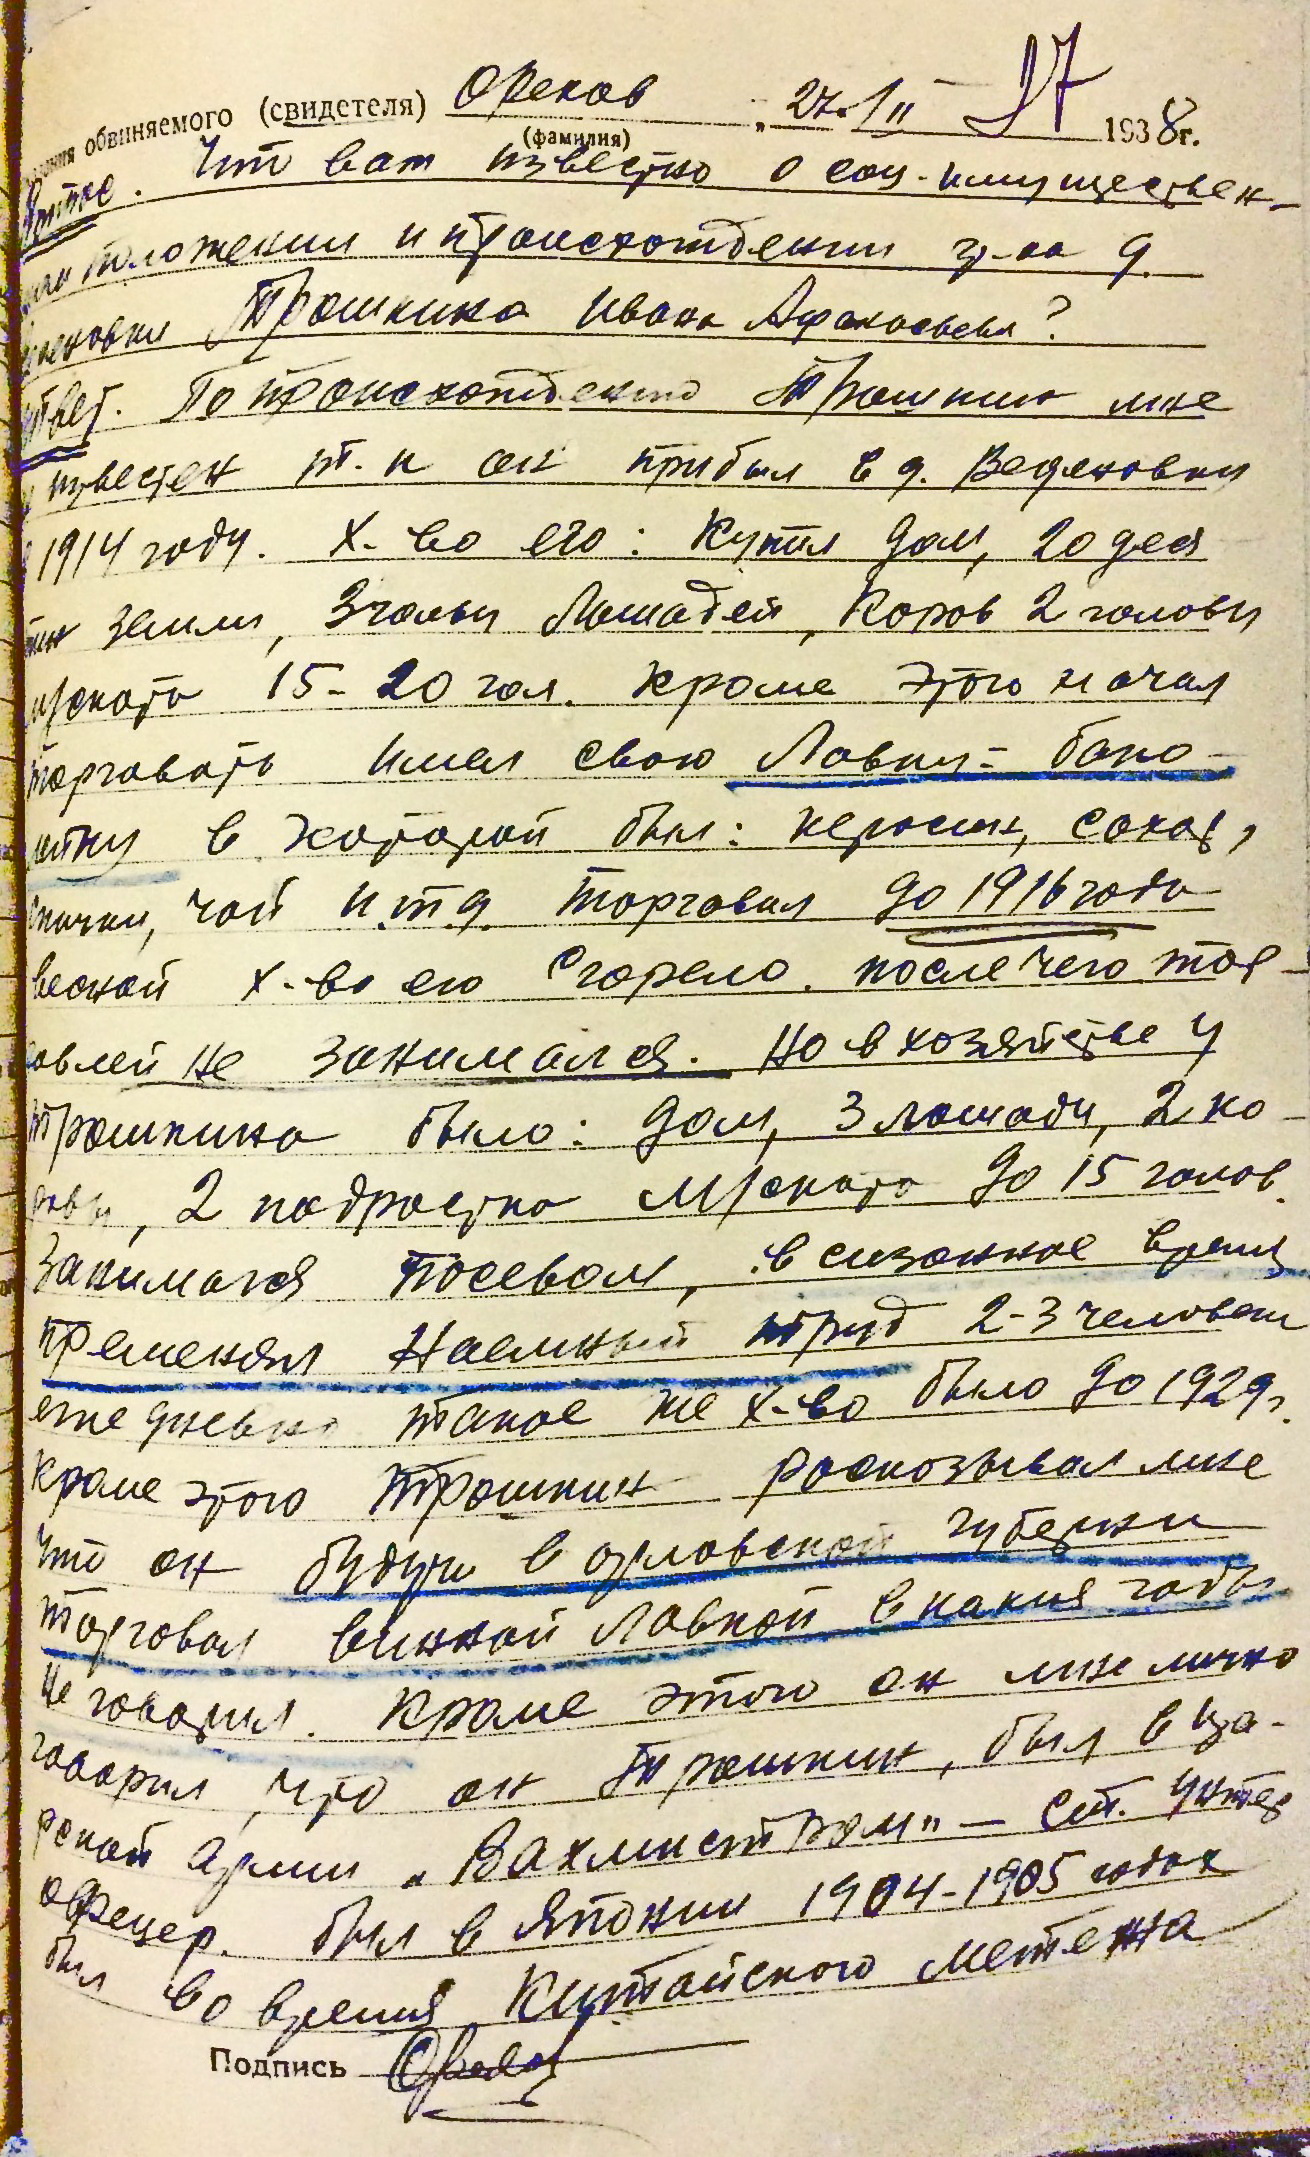 обвиняемого (свидетеля) Орехов „27.“ II 27 1938г.
(фамилия)
Вопрос. Что вам известно о соц-имуществен-
положении и происхождении гр-на д.
Трошкина Ивана Афанасьевич?
Ответ. По происхождению Трошкин мне
известен т.к он прибыл в д. Веденовку
1914 году. Х-во его: Купил дом, 20 деся
тин земли, 3 головы Лошадей, Коров 2 головы
м/скота 15-20 гол. кроме этого начал
торговать имел свою Лавку-бако-
лейку в которой был: керосин, сахар,
спички, чай и.т.д. торговал до 1916 года
весной х-во его сгорело. после чего тор-
говлей не занимался. но в хозяйстве у
Трошкина было: дом, 3 лошади, 2 ко-
ровы, 2 подростка м/скота до 15 голов.
Занимался посевом, в сизонное время
пременял Наемный труд 2-3 человека
ежедневно такое же х-во было до 1929г.
кроме этого Трошкин росказывал мне
что он будучи в орловской губерни
торговал винной Лавкой в какия годы
не говорил. кроме этого он мне лично
говорил, что он Трошкин, был в ца-
рской армии „Вахмистром“ — ст. унтер
офецер. был в Японии 1904-1905 годах
был во время Китайского метежа
Подпись